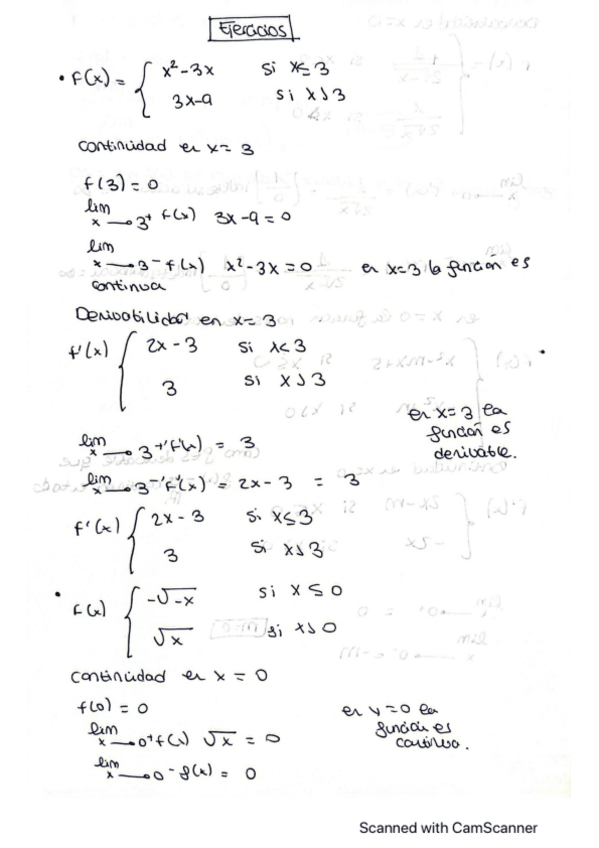 Ejercicios
• f(x) = { x² - 3x si x ≤ 3
3x - 9 si x > 3
continuidad en x = 3
f(3) = 0
lim x → 3⁺ f(x) 3x - 9 = 0
lim x → 3⁻ f(x) x² - 3x = 0 en x = 3 la función es
continua
Derivabilidad en x = 3
f'(x) { 2x - 3 si x < 3
3 si x > 3
en x = 3 la
función es
derivable.
lim x → 3⁺ f'(x) = 3
lim x → 3⁻ f'(x) = 2x - 3 = 3
f'(x) { 2x - 3 si x ≤ 3
3 si x > 3
• f(x) { -√-x si x ≤ 0
√x si x > 0
continuidad en x = 0
f(0) = 0
lim x → 0⁺ f(x) √x = 0
lim x → 0⁻ f(x) = 0
en x = 0 la
función es
continua.
Scanned with CamScanner